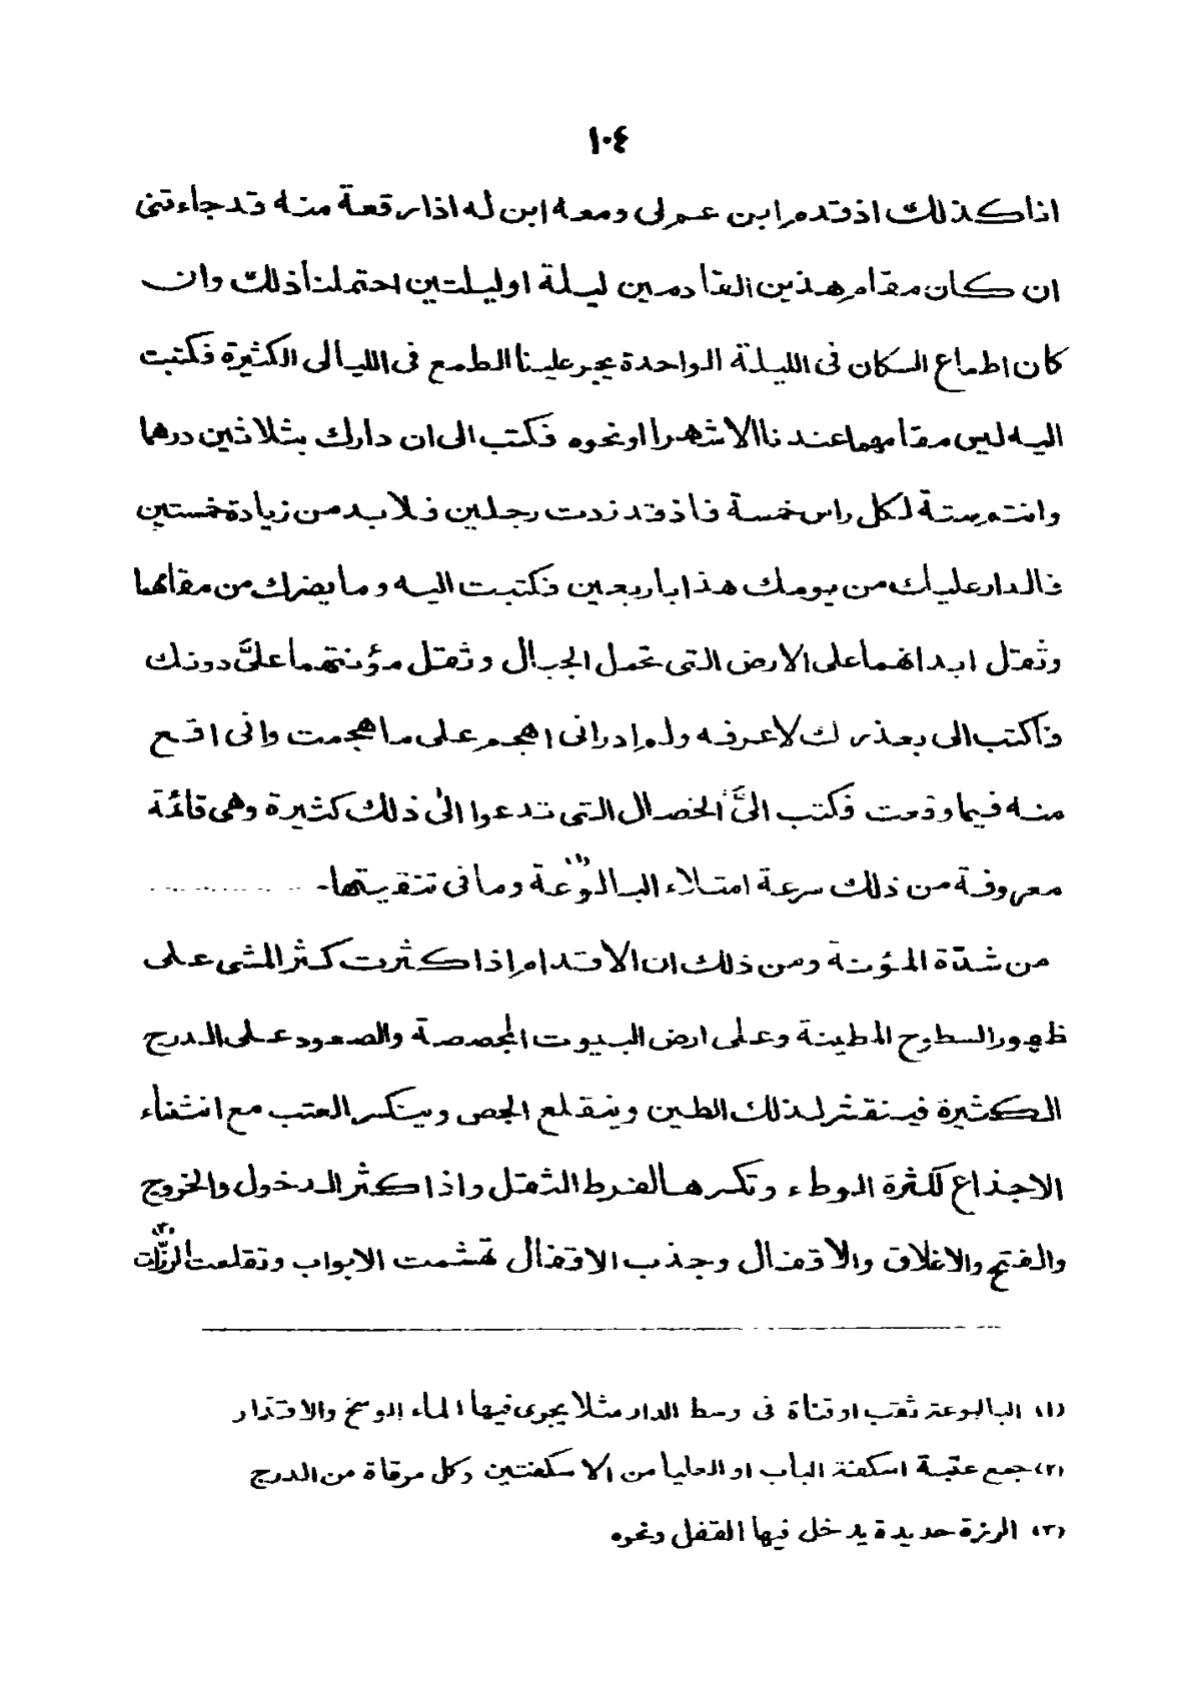 ١٠٤
اناكذلك اذ قدم ابن عم لى ومعه ابن له اذا رقعة منه قد جاءتنى
ان كان مقام هذين القادمين ليلة او ليلتين احتملنا ذلك وان
كان اطماع السكان فى الليلة الواحدة يجر علينا الطمع فى الليالى الكثيرة فكتبت
اليه ليس مقامهما عندنا الا شهرا او نحوه فكتب الى ان دارك بثلاثين درهما
وانتم ستة لكل راس خمسة فاذ قد زدت رجلين فلا بد من زيادة خمستين
فالدار عليك من يومك هذا باربعين فكتبت اليه وما يضرك من مقامهما
وثقل ابدانهما على الارض التى تحمل الجبال وثقل مؤنتهما علىَّ دونك
فاكتب الى بعذرك لاعرفه ولم ادر انى اهجم على ما هجمت وانى اقع
منه فيما وقعت فكتب الىَّ الخصال التى تدعوا الى ذلك كثيرة وهى قائمة
معروفة من ذلك سرعة امتلاء البالوعة (١) وما فى تنقيتها-
من شدّة المؤنة ومن ذلك ان الاقدام اذا كثرت كثر المشى على
ظهور السطوح المطينة وعلى ارض البيوت المجصصة والصعود على الدرج
الكثيرة فينقشر لذلك الطين وينقلع الجص وينكسر العتب مع انثناء
الاجذاع لكثرة الوطء وتكسرها لفرط الثقل واذا كثر الدخول والخروج
والفتح والاغلاق والاقفال وجذب الاقفال تهشمت الابواب وتقلعت الرزّات (٣)
(١) البالوعة ثقب او قناة فى وسط الدار مثلا يجرى فيها الماء الوسخ والاقذار
(٢) جمع عتبة اسكفة الباب او العليا من الاسكفتين وكل مرقاة من الدرج
(٣) الرزة حديدة يدخل فيها القفل ونحوه